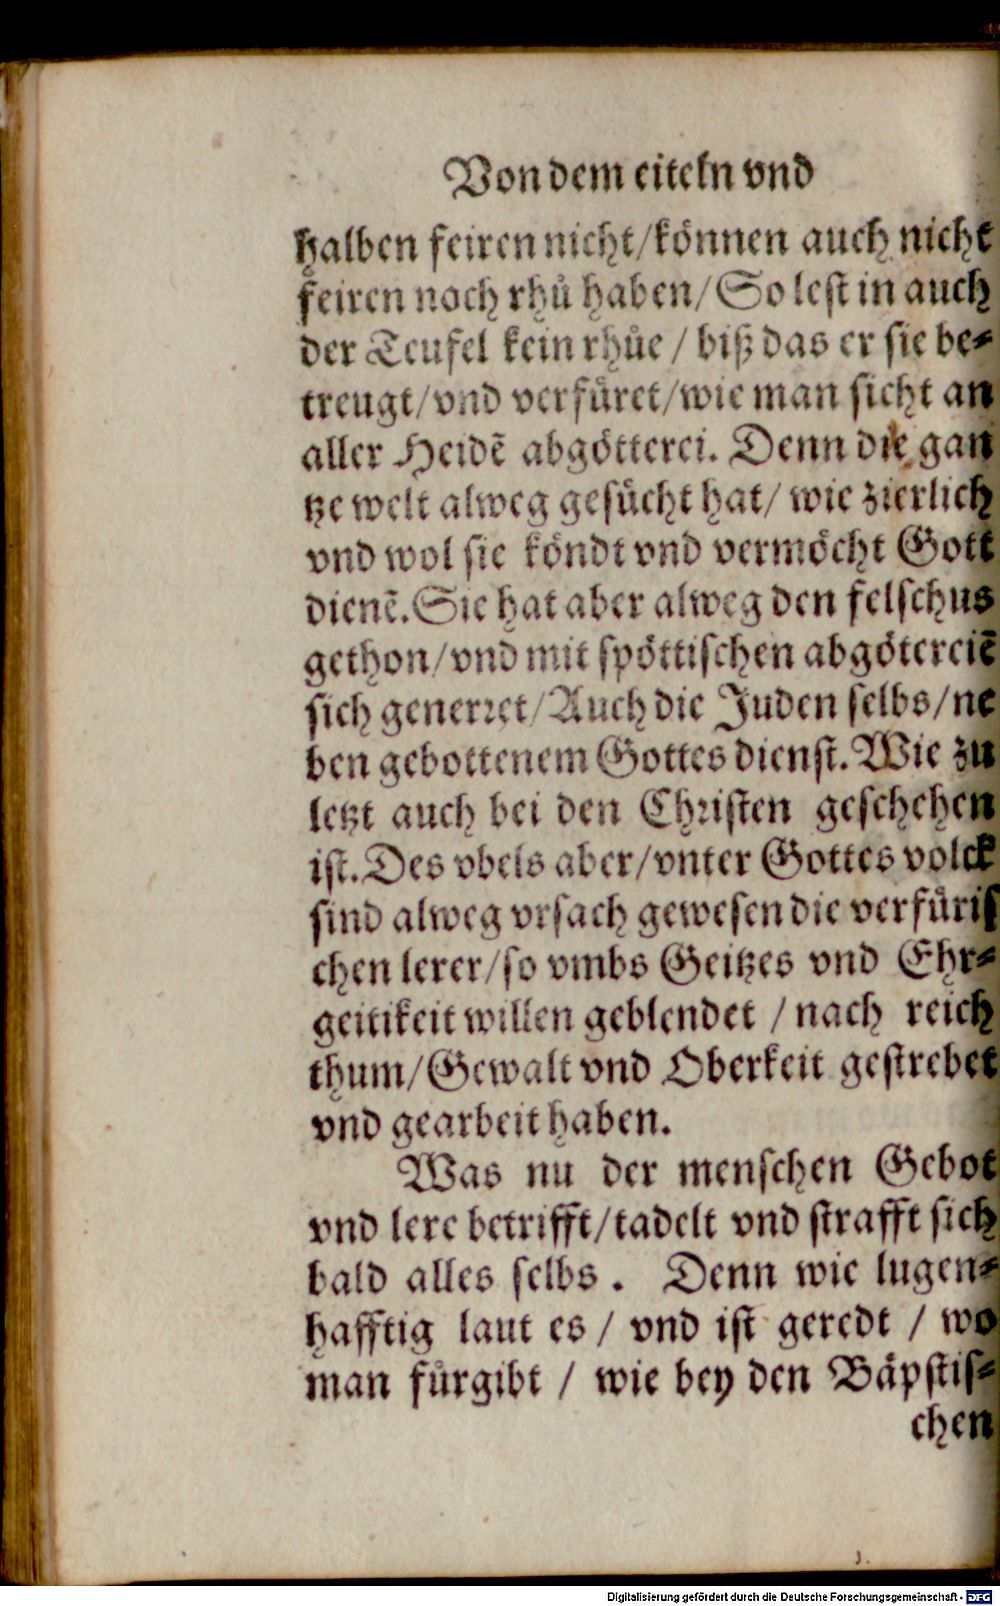 Von dem eiteln vnd
halben feiren nicht/können auch nicht
feiren noch rhů haben/So lest in auch
der Teufel kein rhůe / biß das er sie be⸗
treugt/vnd verfüret/wie man sicht an
aller Heidē abgötterei. Denn die gan
tze welt alweg gesücht hat/ wie zierlich
vnd wol sie köndt vnd vermöcht Gott
dienē. Sie hat aber alweg den felschus
gethon/vnd mit spöttischen abgötereiē
sich generret/Auch die Juden selbs/ne
ben gebottenem Gottes dienst. Wie zu
letzt auch bei den Christen geschehen
ist. Des vbels aber/vnter Gottes volck
sind alweg vrsach gewesen die verfüris
chen lerer/so vmbs Geitzes vnd Ehr⸗
geitikeit willen geblendet / nach reich
thum/Gewalt vnd Oberkeit gestrebet
vnd gearbeit haben.
Was nu der menschen Gebot
vnd lere betrifft/tadelt vnd strafft sich
bald alles selbs . Denn wie lugen⸗
hafftig laut es / vnd ist geredt / wo
man fürgibt / wie bey den Bäpstis⸗
chen
Digitalisierung gefördert durch die Deutsche Forschungsgemeinschaft - DFG